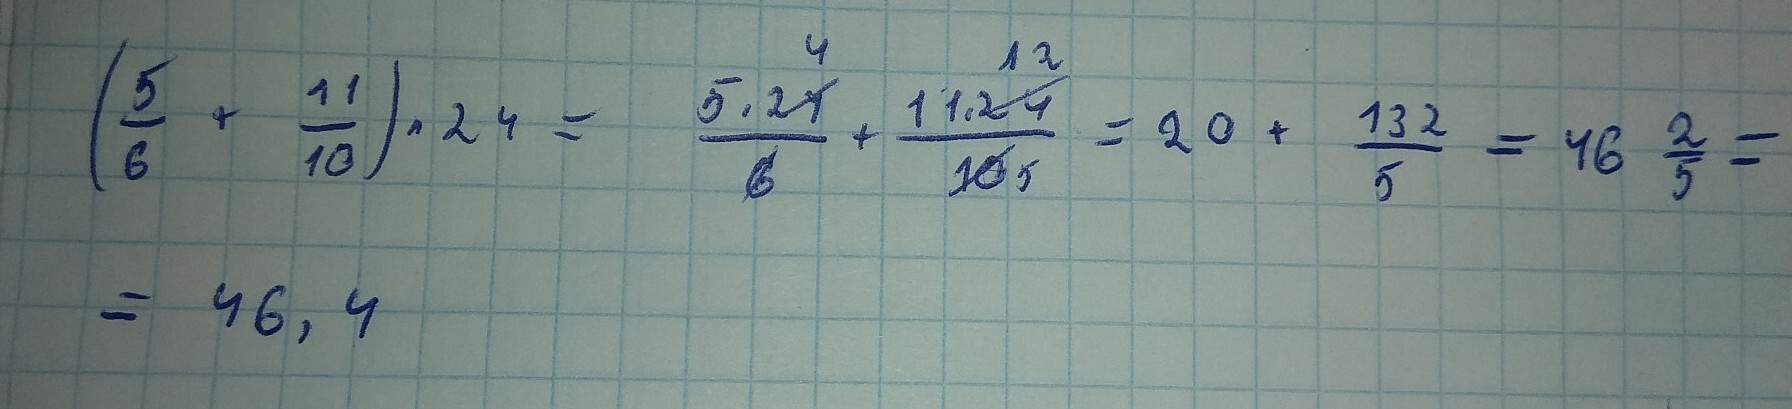 (5/6 + 11/10) · 24 = 5·24/6 + 11·24/10 = 20 + 132/5 = 46 2/5 =
= 46,4